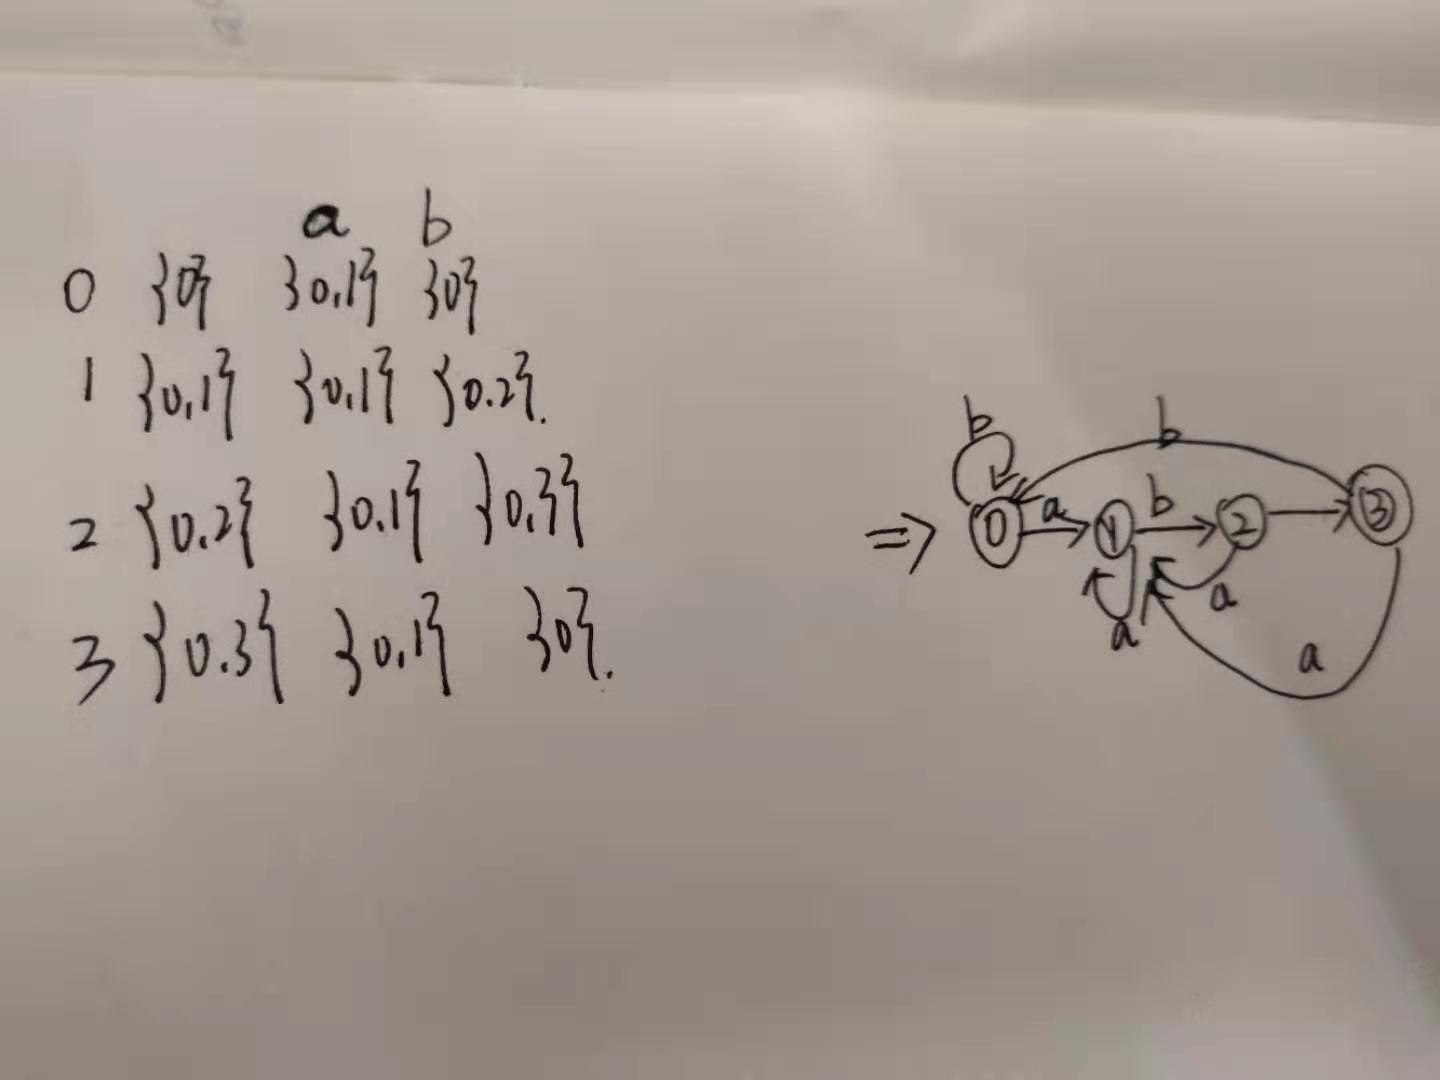 a b
0 {0} {0,1} {0}
1 {0,1} {0,1} {0.2}.
2 {0.2} {0.1} {0,3}
3 {0.3} {0,1} {0}.
b b
⇒ 0 a 1 b 2 3
a a a